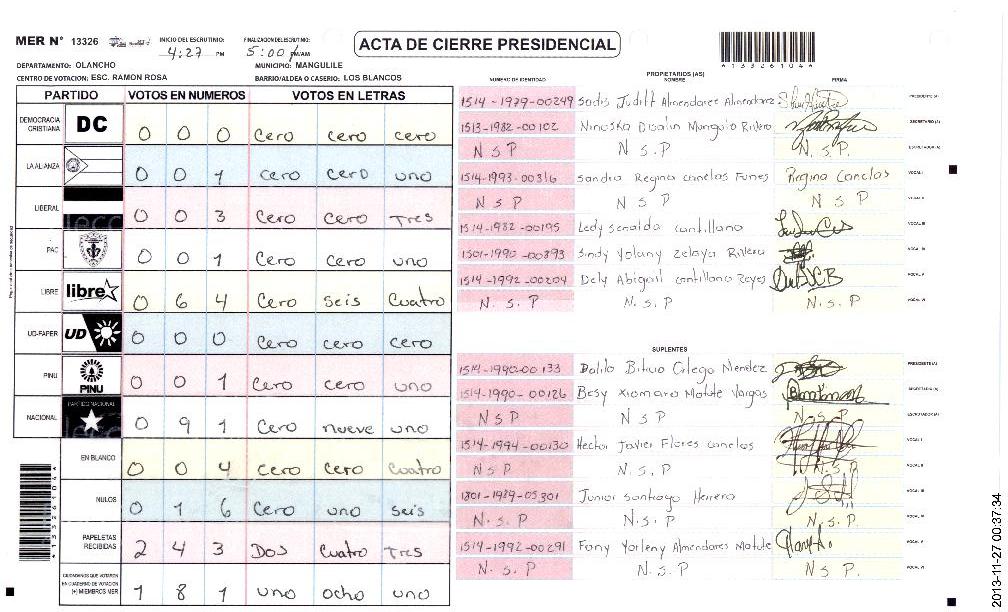 MER N° 13326
INICIO DEL ESCRUTINIO: 4:27 PM
FINALIZACION DEL ESCRUTINIO: 5:00 PM/AM
ACTA DE CIERRE PRESIDENCIAL
4133261044
DEPARTAMENTO: OLANCHO MUNICIPIO: MANGULILE
CENTRO DE VOTACION: ESC. RAMON ROSA BARRIO/ALDEA O CASERIO: LOS BLANCOS
PARTIDO VOTOS EN NUMEROS VOTOS EN LETRAS
DEMOCRACIA CRISTIANA DC 0 0 0 Cero cero cero
LA ALIANZA 0 0 1 cero cero uno
LIBERAL 0 0 3 Cero Cero Tres
PAC 0 0 1 Cero Cero uno
LIBRE libre 0 6 4 Cero seis Cuatro
UD-FAPER UD 0 0 0 Cero cero cero
PINU PINU 0 0 1 Cero cero uno
NACIONAL PARTIDO NACIONAL 0 9 1 Cero nueve uno
EN BLANCO 0 0 4 Cero Cero Cuatro
NULOS 0 1 6 Cero uno seis
PAPELETAS RECIBIDAS 2 4 3 Dos Cuatro Tres
CIUDADANOS QUE VOTARON EN CUADERNO DE VOTACION (+) MIEMBROS MER 1 8 1 uno ocho uno
4133261044
NUMERO DE IDENTIDAD PROPIETARIOS (AS) NOMBRE FIRMA
1514-1979-00249 Sadis Judith Almendares Almendarez PRESIDENTE (A)
1513-1982-00102 Ninoska Dualin Munguia Rivera SECRETARIO (A)
N S P N S.P N. S. P. ESCRUTADOR (A)
1514-1993-00316 Sandra Regina canelas Funes Regina Canelas VOCAL I
N S P N S P N S P VOCAL II
1514-1982-00195 Ledy Senaida cantillano VOCAL III
1501-1990-00893 Sindy Yolany Zelaya Rivera VOCAL IV
1514-1992-00204 Dely Abigail cantillano Reyes VOCAL V
N. S. P N. S. P N. S. P VOCAL VI
SUPLENTES
1514-1990-00133 PRESIDENTE (A)
1514-1990-00126 Besy Xiomara Matute Vargas SECRETARIO (A)
N S P N S P N. S. P ESCRUTADOR (A)
1514-1994-00130 Hector Javier Flores canelas VOCAL I
N S P N. S. P N. S. P VOCAL II
1801-1989-05301 Junior santiago Herrera VOCAL III
N. S. P N. S. P N. S. P. VOCAL IV
1514-1992-00291 Fany Yorleny Almendares Matute VOCAL V
N. S. P. N. S. P N S P. VOCAL VI
2013-11-27 00:37:34